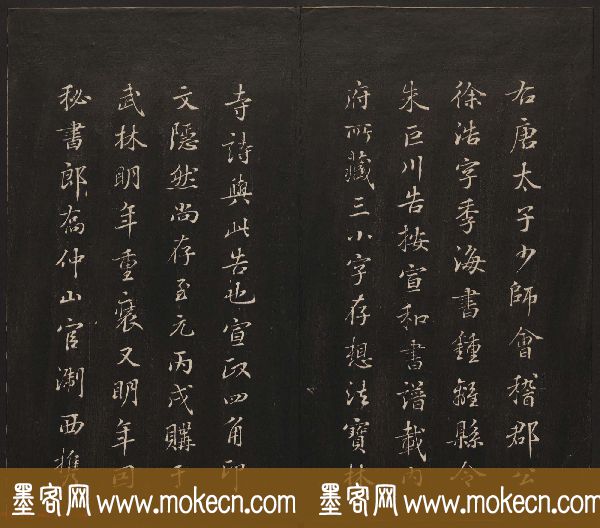 右唐太子少師會稽郡公
徐浩字季海書鍾離縣令
朱巨川告按宣和書譜載內
府所藏三小字存想法寶林
寺詩與此告也宣政四角印
文隱然尚存至元丙戌購于
武林明年重裝又明年因
秘書郎喬仲山官淛西攜
墨客网 www.mokecn.com 墨客网 www.mokecn.com